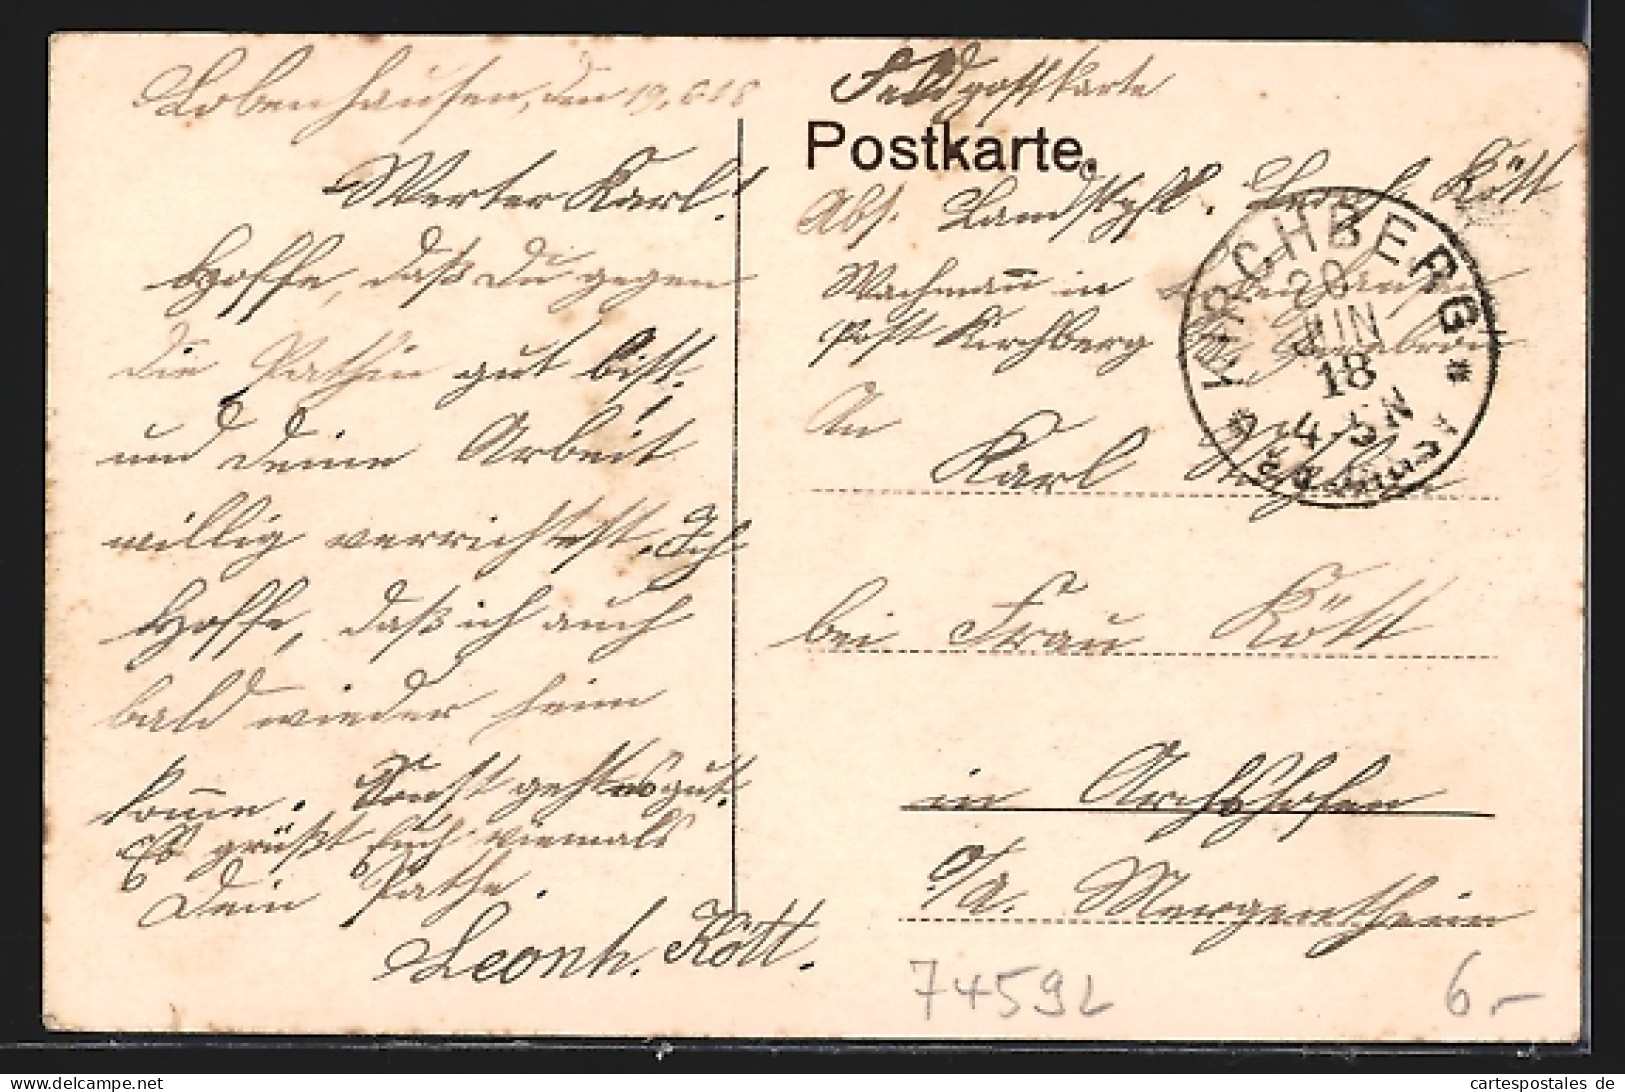 Lobenhausen, den 19. 6 18
Werter Karl!
Hoffe, daß Du gegen
die Pathin gut bist.
und deine Arbeit
willig verrichtest. Ich
Hoffe, daß ich auch
bald wieder heim
kom̅e. Sonst geht es gut.
Es grüßt Euch viemals
Dein Pathe.
Leonh. Kött.
Feldpostkarte
Postkarte.
Abs. Landstpfl. Kött
Wachman̅ in Lobenhausen
Post Kirchberg
An
Karl
bei Frau Kött
in Archshofen
O/A. Mergentheim
KIRCHBERG
20
JUN
18
4-5 N
74592
6.-
cartespostales de